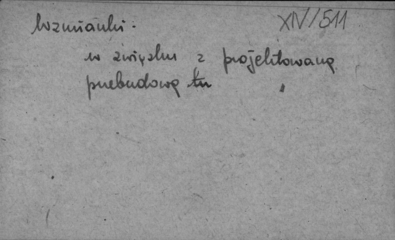 Wzmianki. XIV/511
w związku z projektowaną
przebudową tu